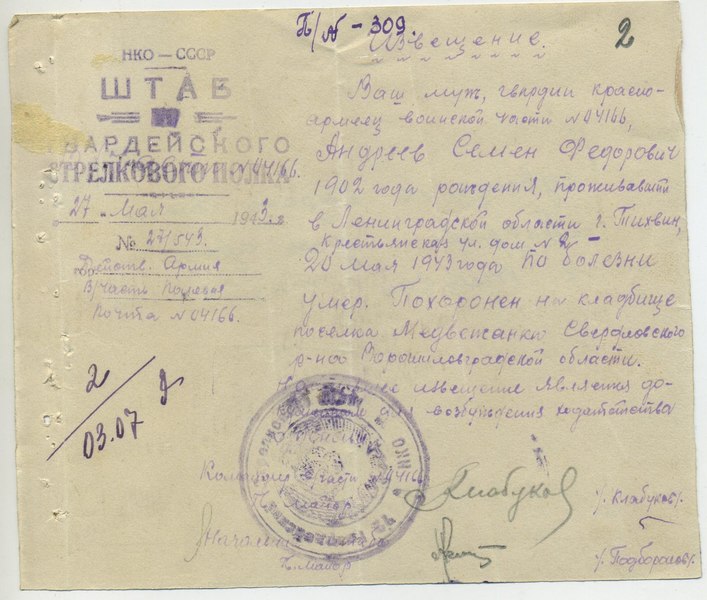 П/№-309.
2
Извещение.
НКО — СССР
ШТАБ
ГВАРДЕЙСКОГО
СТРЕЛКОВОГО ПОЛКА
№04166.
27 " Мая 1943 г
№ 27/543.
Действ. Армия
В/часть Полевая
Почта №04166.
2
03.07
Ваш муж, гвардии красно-
армеец воинской части №04166,
Андреев Семен Федорович
1902 года рождения, проживавший
в Ленинградской области г. Тихвин,
Крестьянская ул. дом №
20 мая 1943 года по болезни
умер. Похоронен на кладбище
поселка Свердловского
р-на Ворошиловградской области.
извещение является до-
возбуждения ходатайства
о пенсии
Командир части 04166
майор
Клабуков
/Клабуков/.
Начальник штаба
майор
/Подборонов/.
НКО